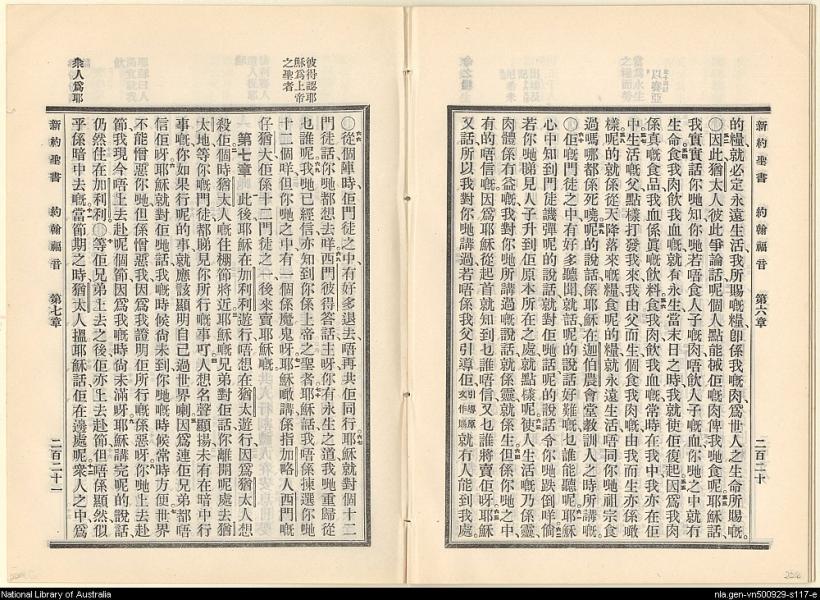 新約聖書 約翰福音 第六章 二百二十
的糧就必定永遠生活我所賜嘅糧卽係我嘅肉爲世人之生命所賜嘅
○因此猶太人彼此爭論話呢個人點能𢬿佢嘅肉俾我哋食呢耶穌話
我實實話你哋知你哋若唔食人子嘅肉唔飲人子嘅血你哋之中就冇
生命食我肉飲我血嘅就有永生當末日之時我就使佢復起因爲我肉
係眞嘅食品我血係眞嘅飲料食我肉飲我血嘅常時在我中我亦在佢
中生活嘅父點樣打發我來我由父而生個食我肉嘅由我而生亦係噉
樣呢的就係從天降落來嘅糧食呢的糧就永遠生活唔同你哋祖宗食
過嗎嗱都係死嘵呢的說話係耶穌在迦伯農會堂敎訓人之時所講嘅
○佢嘅門徒之中有好多聽聞就話呢的說話好難嘅乜誰能聽呢耶穌
心中知到門徒譏彈呢的說話就對佢哋話呢的說話令你哋跌倒咩倘
若你哋睇見人子升到佢原本所在之處就點樣呢使人生活嘅乃係靈
肉體係冇益嘅我對你哋所講過嘅說話就係靈就係生但係你哋之中
有的唔信嘅因爲耶穌從起首就知到乜誰唔信又乜誰將賣佢呀耶穌
又話所以我對你哋講過若唔係我父引導佢引導原文作賜就冇人能到我處
彼得認耶穌爲上帝之聖者
衆人爲耶
○從個陣時佢門徒之中有好多退去唔再共佢同行耶穌就對個十二
門徒話你哋都想去咩西門彼得答話主呀你有永生之道我哋重歸從
乜誰呢我哋已經信亦知到你係上帝之聖者耶穌話我唔係揀選你哋
十二個咩但你哋之中有一個係魔鬼呀耶穌噉講係指加略人西門嘅
仔猶大佢係十二門徒之一後來賣耶穌嘅
第七章 此後耶穌在加利利遊行唔想在猶太遊行因爲猶太人想
殺佢個時猶太人嘅住棚節將近耶穌嘅兄弟對佢話你離開呢處去猶
太地等你嘅門徒都睇見你所行嘅事冇人想名聲顯揚未有在暗中行
事嘅你如果行呢的事就應該顯明自己過世界喇因爲連佢兄弟都唔
信佢呀耶穌就對佢哋話我嘅時候尙未到你哋嘅時候常時方便世界
不能憎惡你哋但係憎惡我因爲我證明佢所行嘅係惡呀你哋上去赴
節我現今唔上去赴呢個節因爲我嘅時尙未滿呀耶穌講完呢的說話
仍然住在加利利○等佢兄弟上去之後佢亦上去赴節但唔係顯然似
乎係暗中去嘅當節期之時猶太人搵耶穌話佢在邊處呢衆人之中爲
新約聖書 約翰福音 第七章 二百二十一
National Library of Australia
nla.gen-vn500929-s117-e